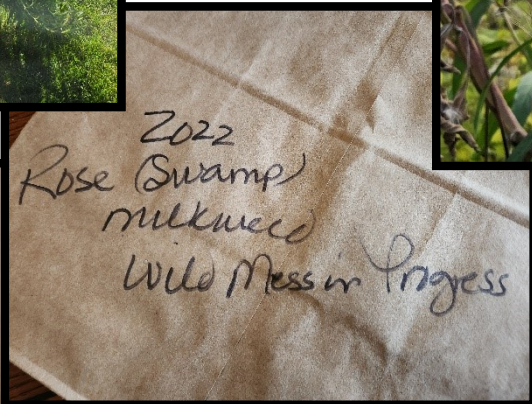 2022
Rose (Swamp)
milkweed
Wild Mess in Progress